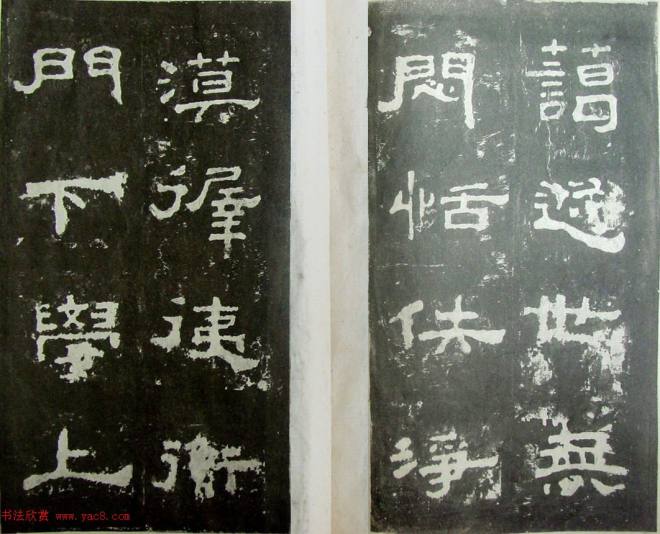 藹遯世無
悶恬佚淨
漠徲衡
門下學上
书法欣赏 www.yac8.com